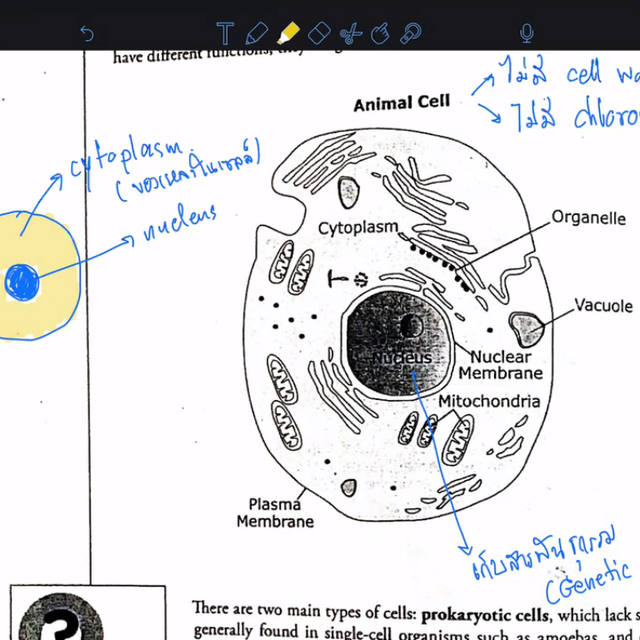 have different functions, they
ไม่มี cell wa
Animal Cell
ไม่มี chloro
cytoplasm
(ของเหลวในเซลล์)
Organelle
nucleus
Cytoplasm
Vacuole
Nucleus
Nuclear
Membrane
Mitochondria
Plasma
Membrane
เก็บสารพันธุกรรม
(Genetic
?
There are two main types of cells: prokaryotic cells, which lack s
generally found in single-cell organisms such as amoebas, and